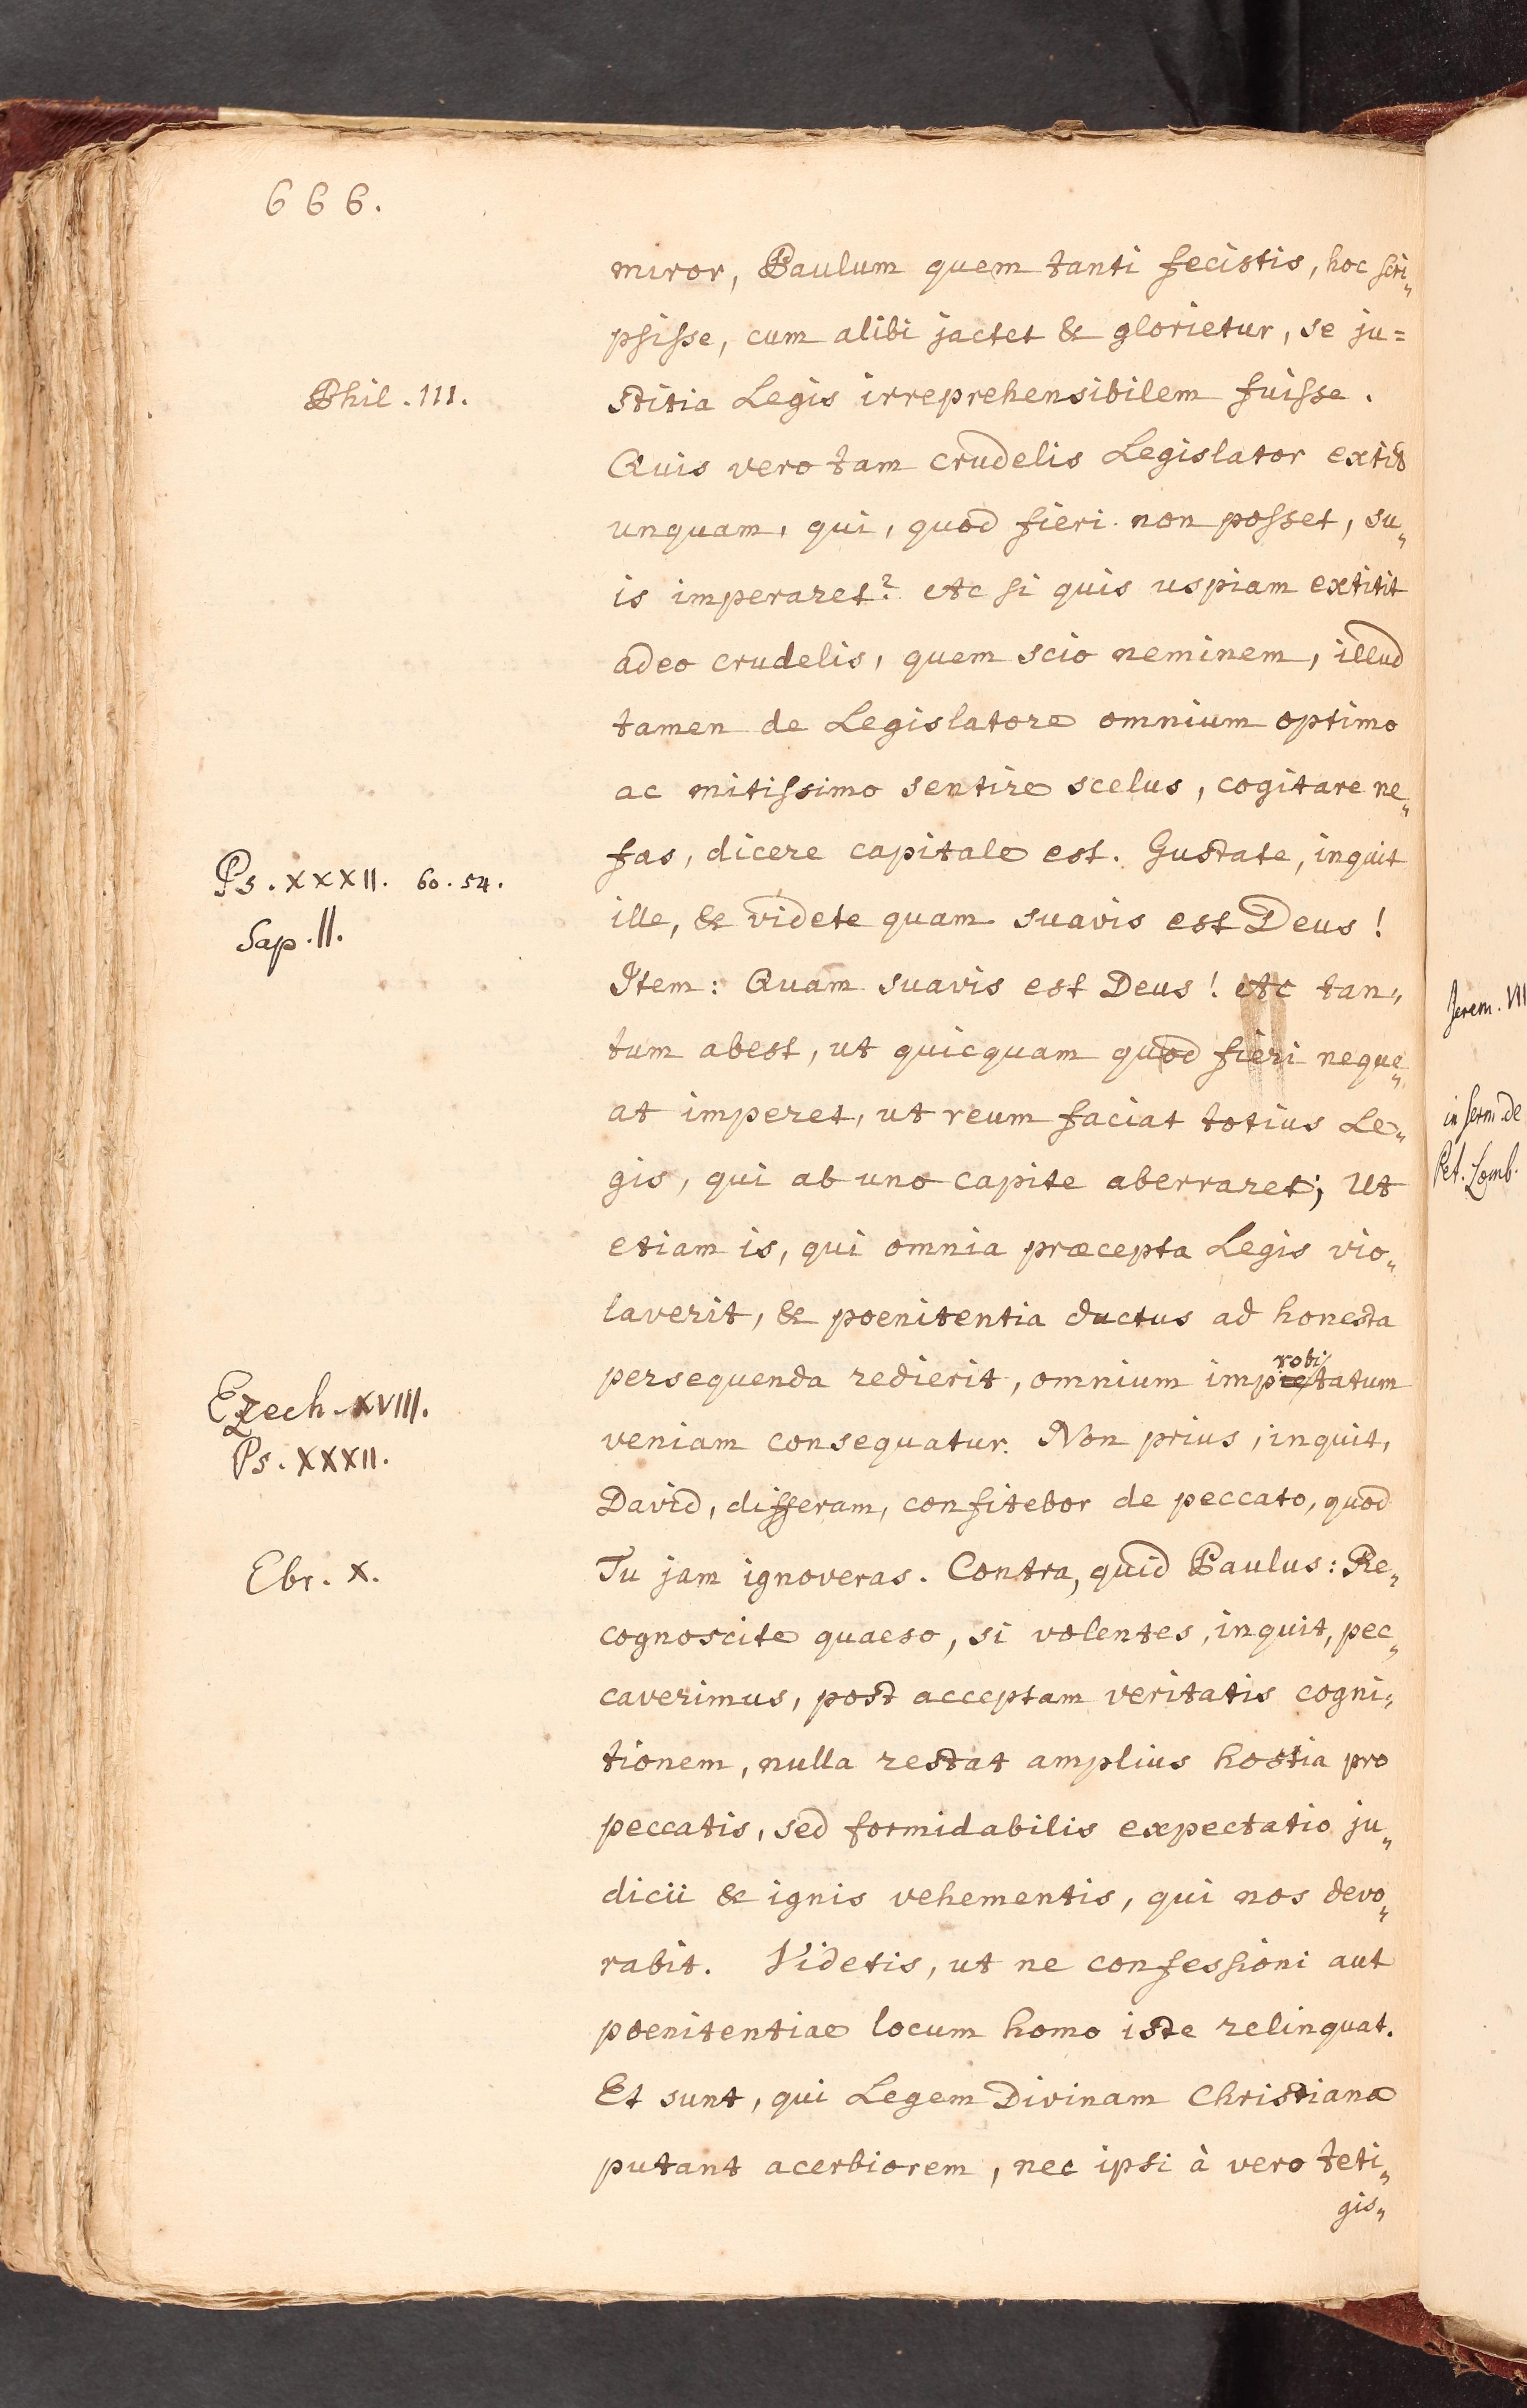 666.
miror, Paulum quem tanti fecistis, hoc scri„
psisse, cum alibi jactet & glorietur, se ju=
Phil. III.
stitia Legis irreprehensibilem fuisse.
Quis vero tam crudelis Legislator extit
unquam, qui, quod fieri non posset, su„
is imperaret? Ac si quis uspiam extitit
adeo crudelis, quem scio neminem, illud
tamen de Legislatore omnium optimo
ac mitissimo sentire scelus, cogitare ne„
fas, dicere capitale est. Gustate, inquit
Ps. XXXII. 60. 54.
ille, & videte quam suavis est Deus!
Sap. II.
Item: Quam suavis est Deus! Ac tan„
tum abest, ut quicquam quod fieri neque„
at imperet, ut reum faciat totius Le„
gis, qui ab uno capite aberraret; Ut
etiam is, qui omnia præcepta Legis vio„
laverit, & poenitentia ductus ad honesta
persequenda redierit, omnium improbitatum
Ezech. XVIII.
veniam consequatur. Non prius, inquit,
Ps. XXXII.
David, disseram, confitebor de peccato, quod
Tu jam ignoveras. Contra, quid Paulus: Re„
Ebr. X.
cognoscite quaeso, si volentes, inquit, pec„
caverimus, post acceptam veritatis cogni„
tionem, nulla restat amplius hostia pro
peccatis, sed formidabilis expectatio ju„
dicii & ignis vehementis, qui nos devo„
rabit. Videtis, ut ne confessioni aut
poenitentiae locum homo iste relinquat.
Et sunt, qui Legem Divinam Christiana
putant acerbiorem, nec ipsi à vero teti„
gis„
Jerem. VII
in serm. de
Pet. Lomb.